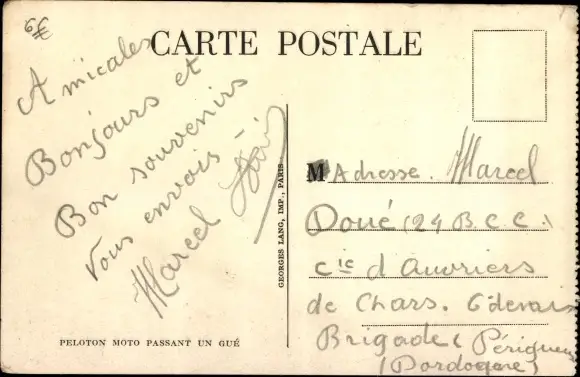 6€
CARTE POSTALE
Amicales
Bonjours et
Bon souvenirs
Vous envois -
Marcel
GEORGES LANG, IMP., PARIS
M Adresse. Marcel
Doué (24 B.C.C.)
Cie d'Ouvriers
de Chars.
Brigade (Périgueux
(Dordogne)
PELOTON MOTO PASSANT UN GUÉ